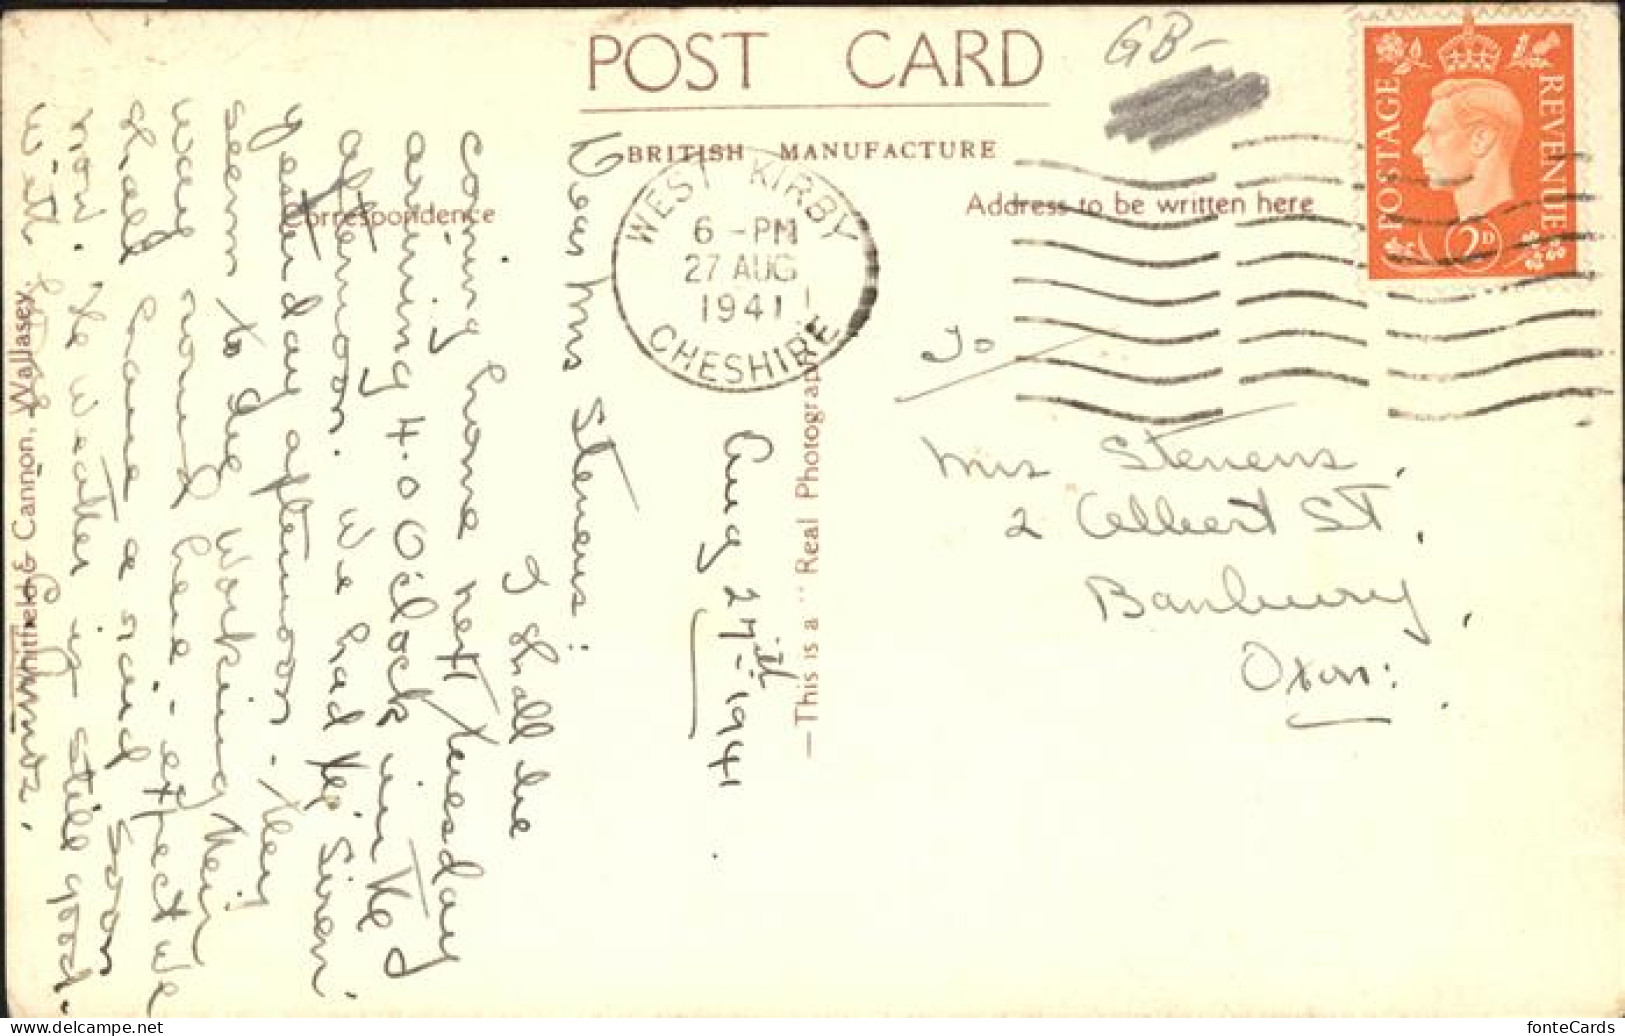 POST CARD
GB-
BRITISH MANUFACTURE
Correspondence
Address to be written here
POSTAGE
REVENUE
2D
WEST KIRBY
6 - PM
27 AUG
1941
CHESHIRE
Aug 27th 1941
Dear Mrs Stevens:
I shall be
coming home next Tuesday
arriving 4.0 O'clock in the
afternoon. We had the Siren
yesterday afternoon - they
seem to be working their
way round here - expect we
shall have a raid soon
now. The weather is still good.
with
To
Mrs Stevens,
2 Albert St,
Banbury,
Oxon:
—This is a "Real Photograph
Whitfield & Cannon, Wallasey.
fonteCards